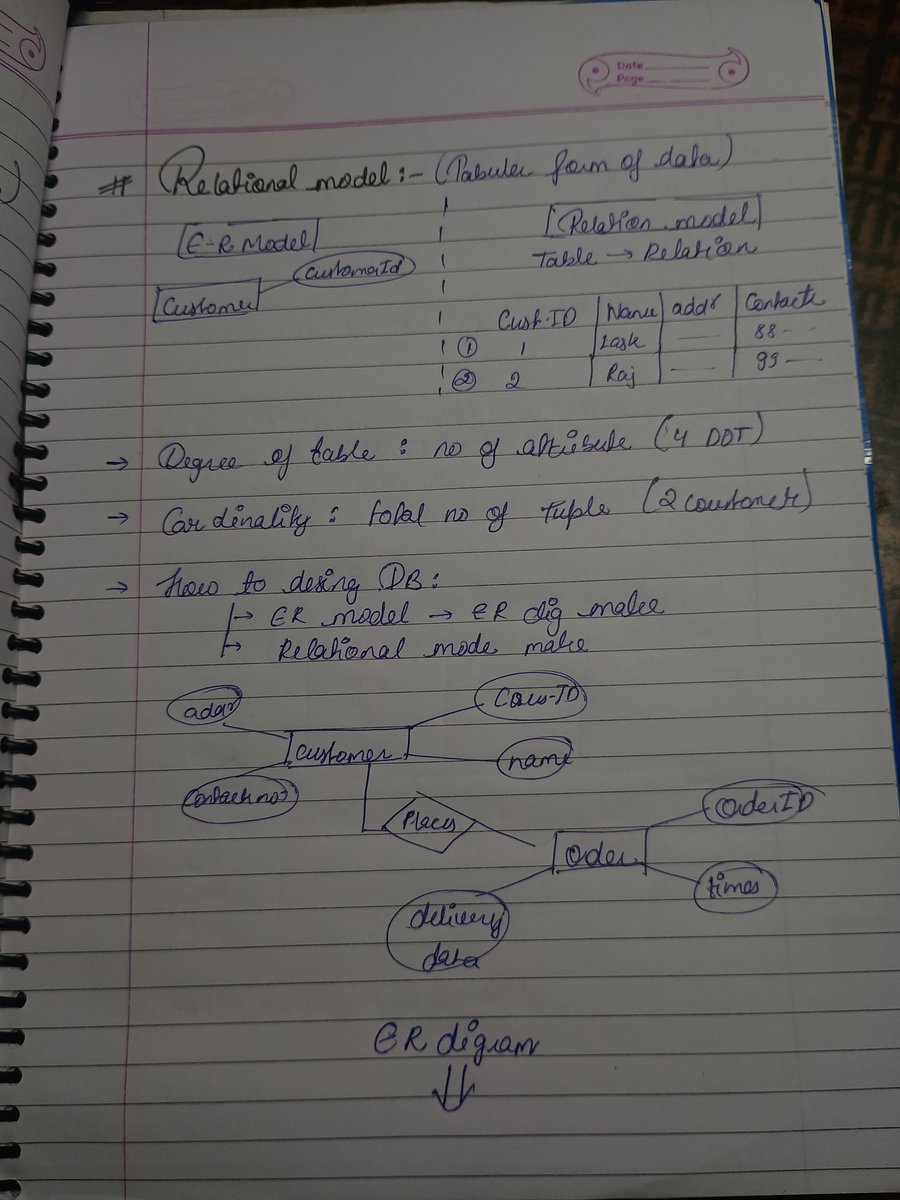 Date
Page
# Relational model :- (Tabuler form of data)
E-R Model
Relation model
Customer
CustomerId
Table → Relation
Cust-ID | Name | addr | Contact
① 1 Lask —— 88 --
② 2 Raj —— 99 --
→ Degree of table : no of attribute (4 DDT)
→ Cardinality : total no of Tuple (2 coustomer)
→ How to desing DB :
→ ER model → ER dig make
→ Relational mode make
addr
Cous-ID
Customer
name
Contact no
Places
OrderID
Oder
times
delivery
data
ER digram